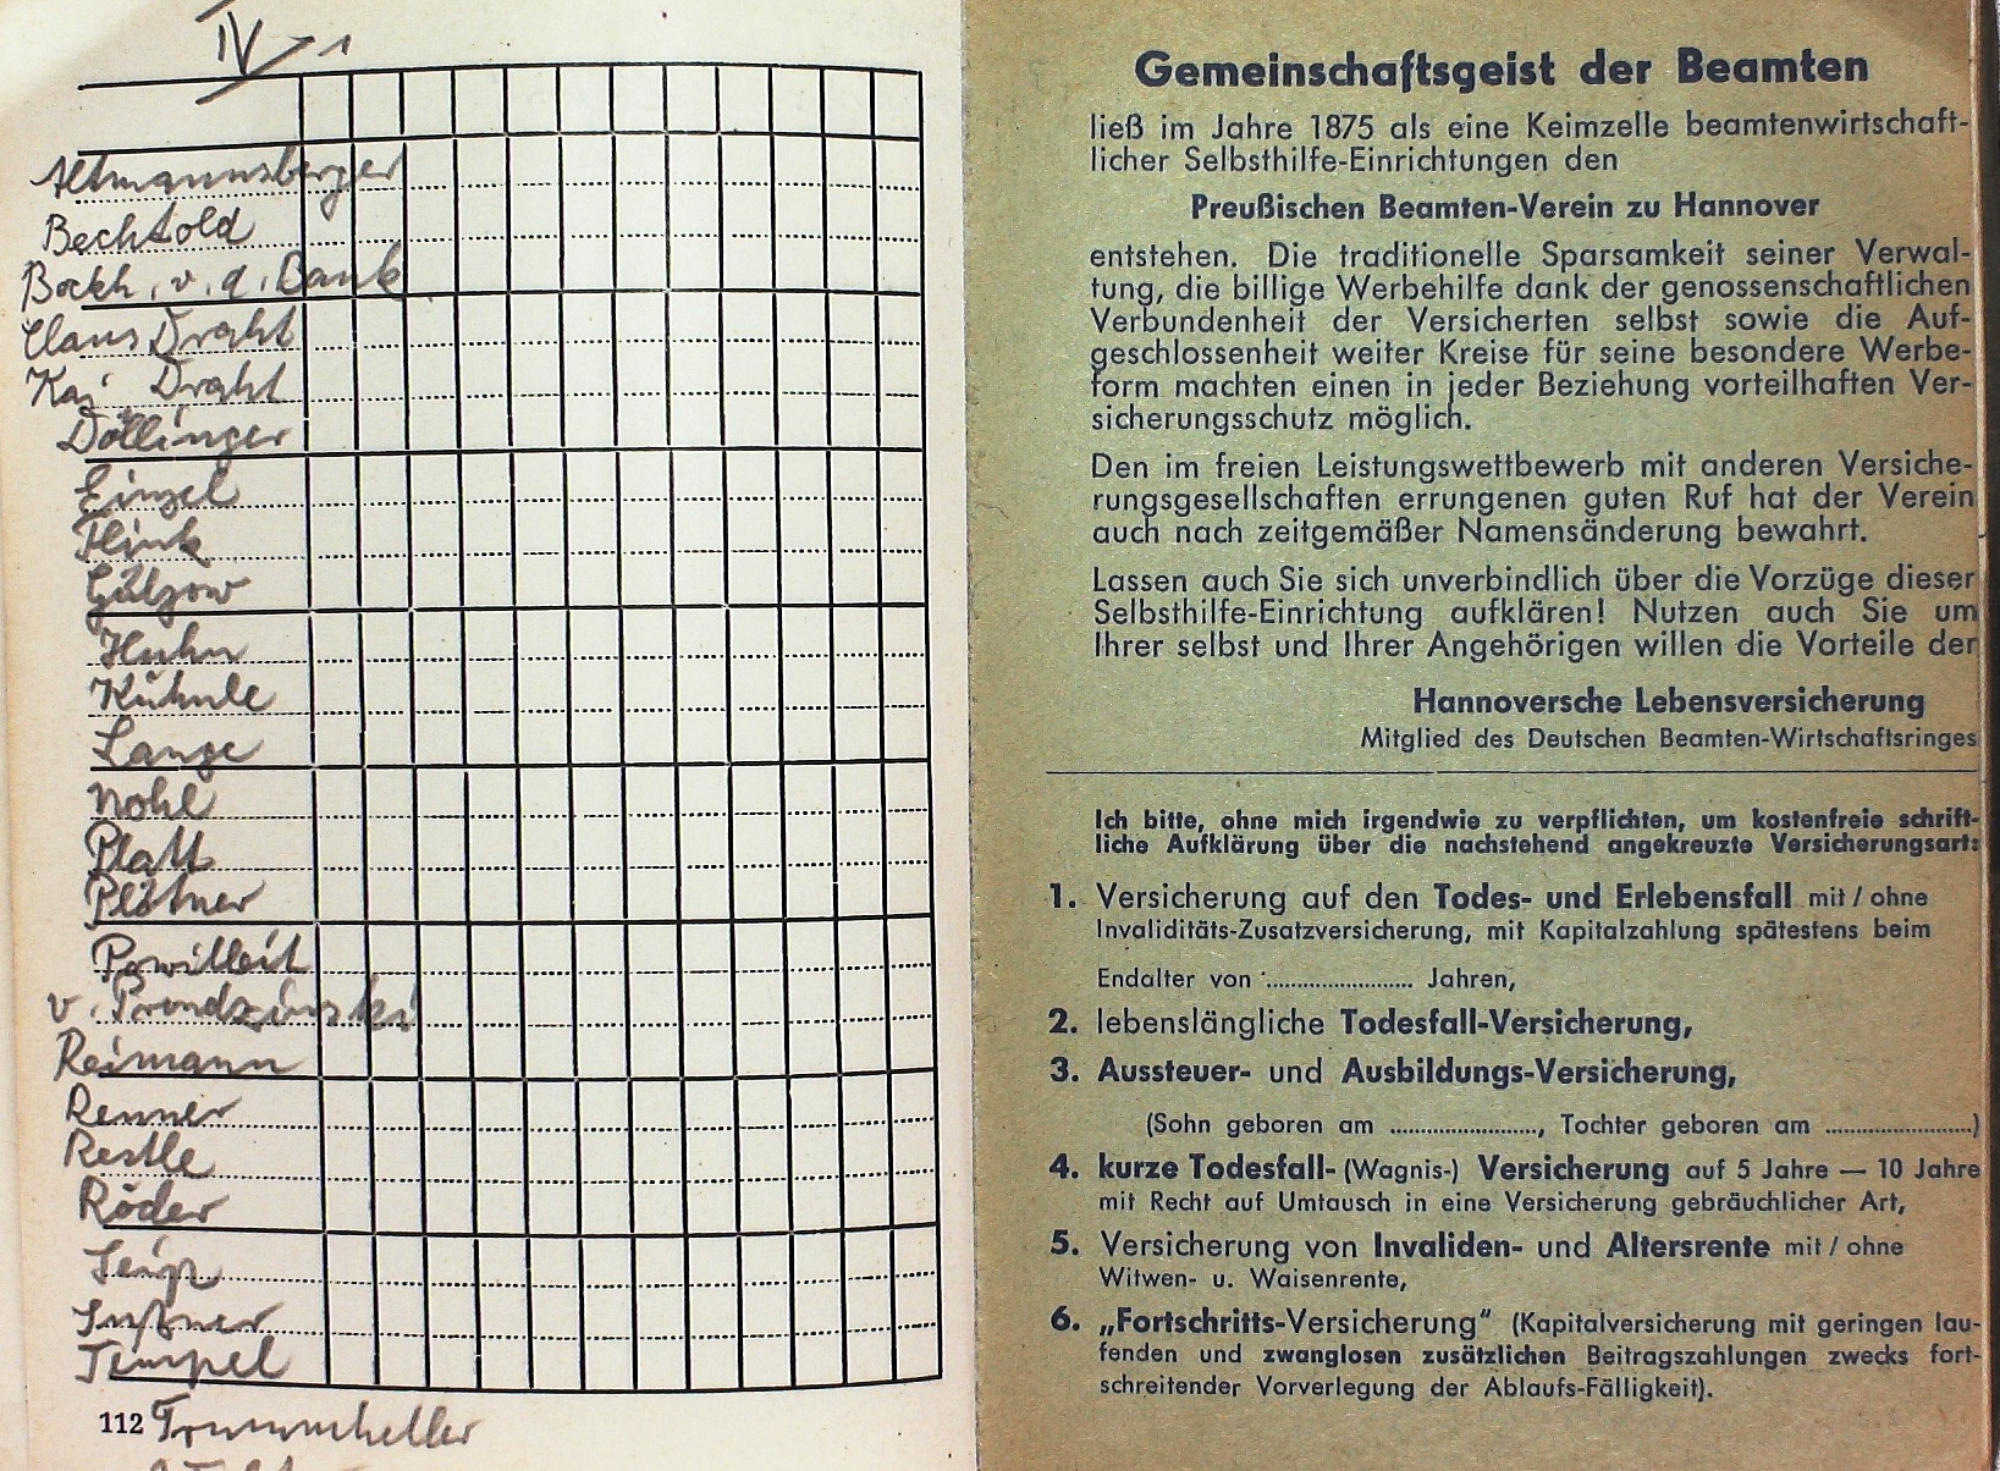 IV 1
Altmannsberger
Bechtold
Bockh. v. d. Bank
Claus Draht
Kai Draht
Döllinger
Einzel
Flink
Gülzow
Huhn
Kühnle
Lange
Nohl
Platt
Plötner
Powilleit
v. Prondzinski
Reimann
Renner
Restle
Röder
Seip
Sußner
Tempel
112 Trumm­heller
Gemeinschaftsgeist der Beamten
ließ im Jahre 1875 als eine Keimzelle beamtenwirtschaft-
licher Selbsthilfe-Einrichtungen den
Preußischen Beamten-Verein zu Hannover
entstehen. Die traditionelle Sparsamkeit seiner Verwal-
tung, die billige Werbehilfe dank der genossenschaftlichen
Verbundenheit der Versicherten selbst sowie die Auf-
geschlossenheit weiter Kreise für seine besondere Werbe-
form machten einen in jeder Beziehung vorteilhaften Ver-
sicherungsschutz möglich.
Den im freien Leistungswettbewerb mit anderen Versiche-
rungsgesellschaften errungenen guten Ruf hat der Verein
auch nach zeitgemäßer Namensänderung bewahrt.
Lassen auch Sie sich unverbindlich über die Vorzüge dieser
Selbsthilfe-Einrichtung aufklären! Nutzen auch Sie um
Ihrer selbst und Ihrer Angehörigen willen die Vorteile der
Hannoversche Lebensversicherung
Mitglied des Deutschen Beamten-Wirtschaftsringes
Ich bitte, ohne mich irgendwie zu verpflichten, um kostenfreie schrift-
liche Aufklärung über die nachstehend angekreuzte Versicherungsart:
1. Versicherung auf den Todes- und Erlebensfall mit / ohne
Invaliditäts-Zusatzversicherung, mit Kapitalzahlung spätestens beim
Endalter von ........................ Jahren,
2. lebenslängliche Todesfall-Versicherung,
3. Aussteuer- und Ausbildungs-Versicherung,
(Sohn geboren am ........................, Tochter geboren am ........................)
4. kurze Todesfall- (Wagnis-) Versicherung auf 5 Jahre — 10 Jahre
mit Recht auf Umtausch in eine Versicherung gebräuchlicher Art,
5. Versicherung von Invaliden- und Altersrente mit / ohne
Witwen- u. Waisenrente,
6. „Fortschritts-Versicherung“ (Kapitalversicherung mit geringen lau-
fenden und zwanglosen zusätzlichen Beitragszahlungen zwecks fort-
schreitender Vorverlegung der Ablaufs-Fälligkeit).